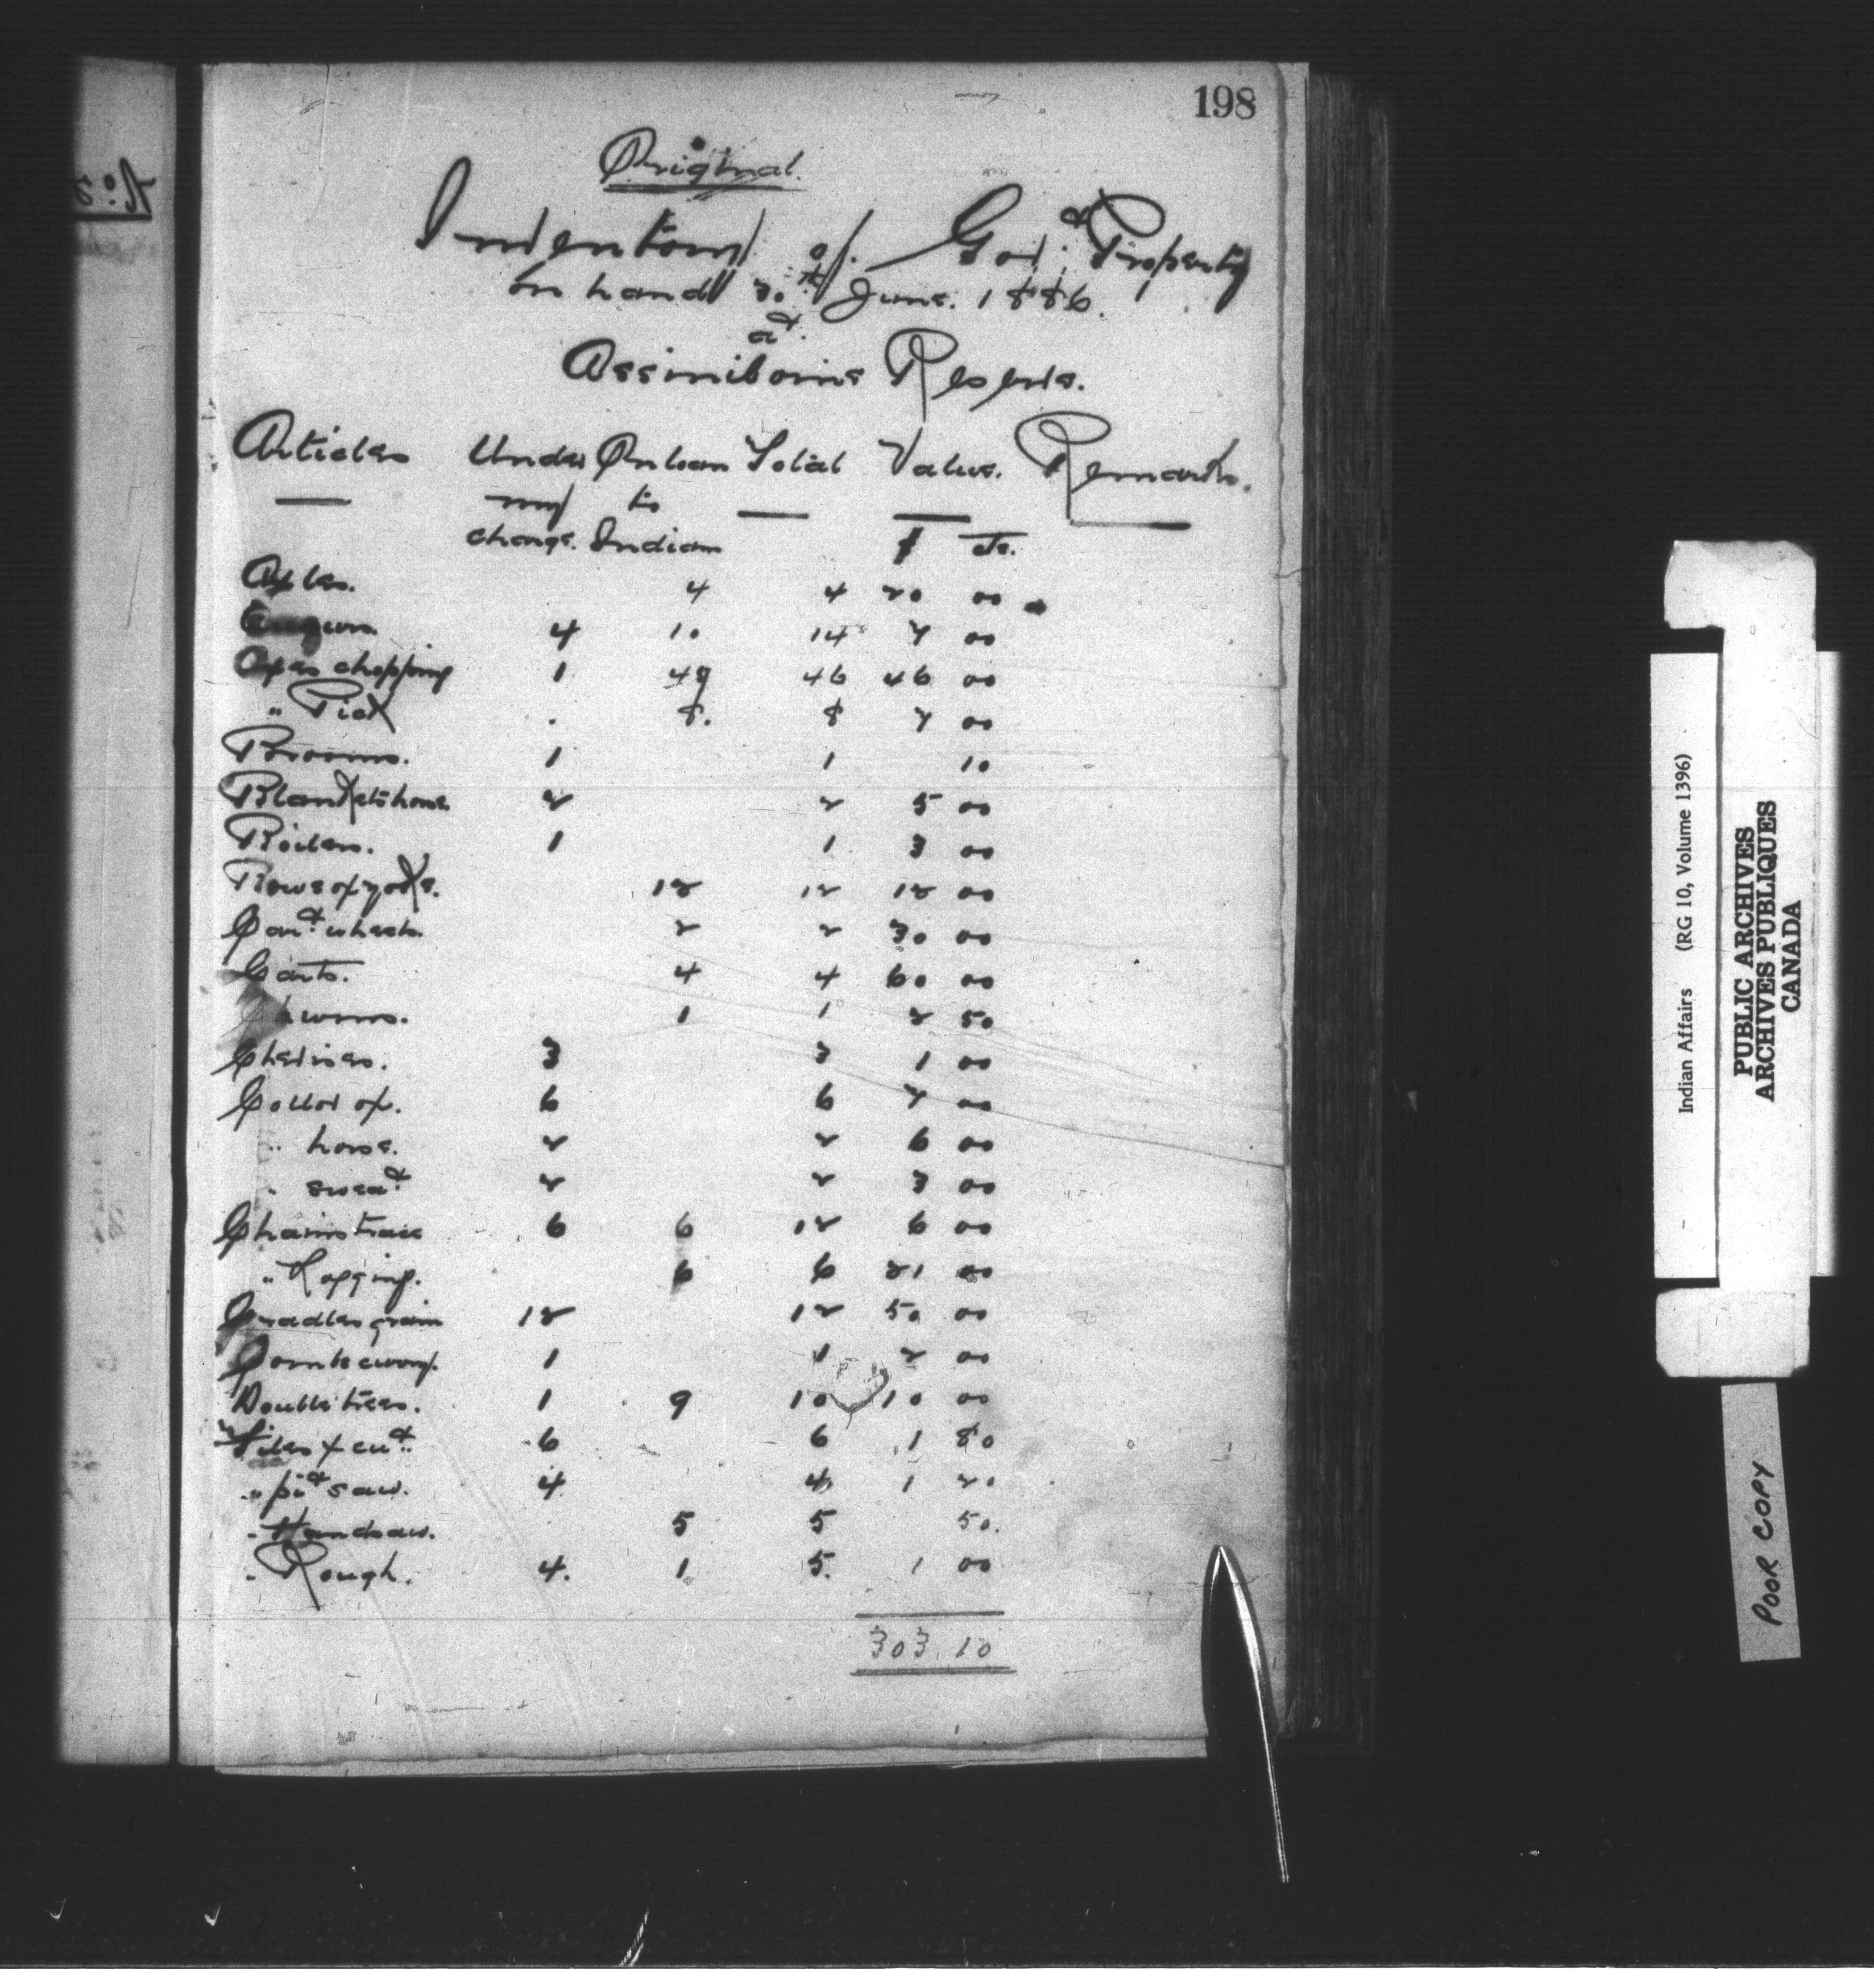 198
Original.
Inventory of Govt. Property
on hand 30th June. 1886.
at
Assiniboine Reserve.
Articles Under On loan Total Value. Remarks.
my to
charge. Indian $ cts.
Axles. 4 4 20 00
4 10 14 7 00
Axes chopping 1 46 46 00
" Pick 8. 8 7 00
Brooms. 1 1 10
Blankets horse 2 2 5 00
Boilers. 1 1 3 00
Bows ox yokes. 12 12 12 00
Cart wheels. 2 2 30 00
Carts. 4 4 60 00
Churns. 1 1 2 50
Clevises. 3 3 1 00
Collar ox. 6 6 7 00
" horse. 2 2 6 00
" sweat 2 2 3 00
Chains trace 6 6 12 6 00
" Logging. 6 6 21 00
Cradles grain 12 12 50 00
1 1 2 00
Doubletrees. 1 9 10 10 00
Files x cut. 6 6 1 80
" pit saw. 4 4 1 20
" Handsaw. 5 5 50.
" Rough. 4. 1 5. 1 00
303.10
Indian Affairs (RG 10, Volume 1396)
PUBLIC ARCHIVES
ARCHIVES PUBLIQUES
CANADA
POOR COPY